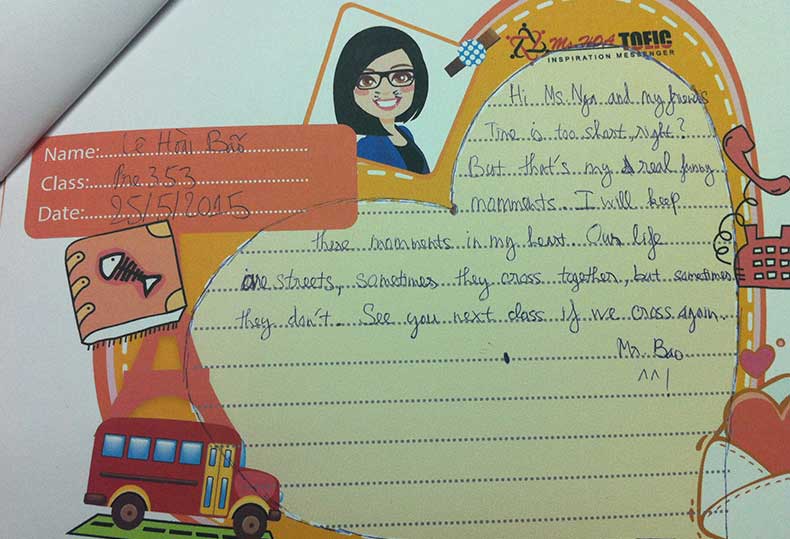 Ms HOA TOEIC
INSPIRATION MESSENGER
Name: Lê Hoài Bão
Class: Pre 353
Date: 25/5/2015
Hi Ms. Nga and my friends
Time is too short, right?
But that's my real funny
momments. I will keep
these momments in my heart. Our life
are streets, sometimes they cross together, but sometimes
they don't. See you next class if we cross again.
Mr. Bao
^^!